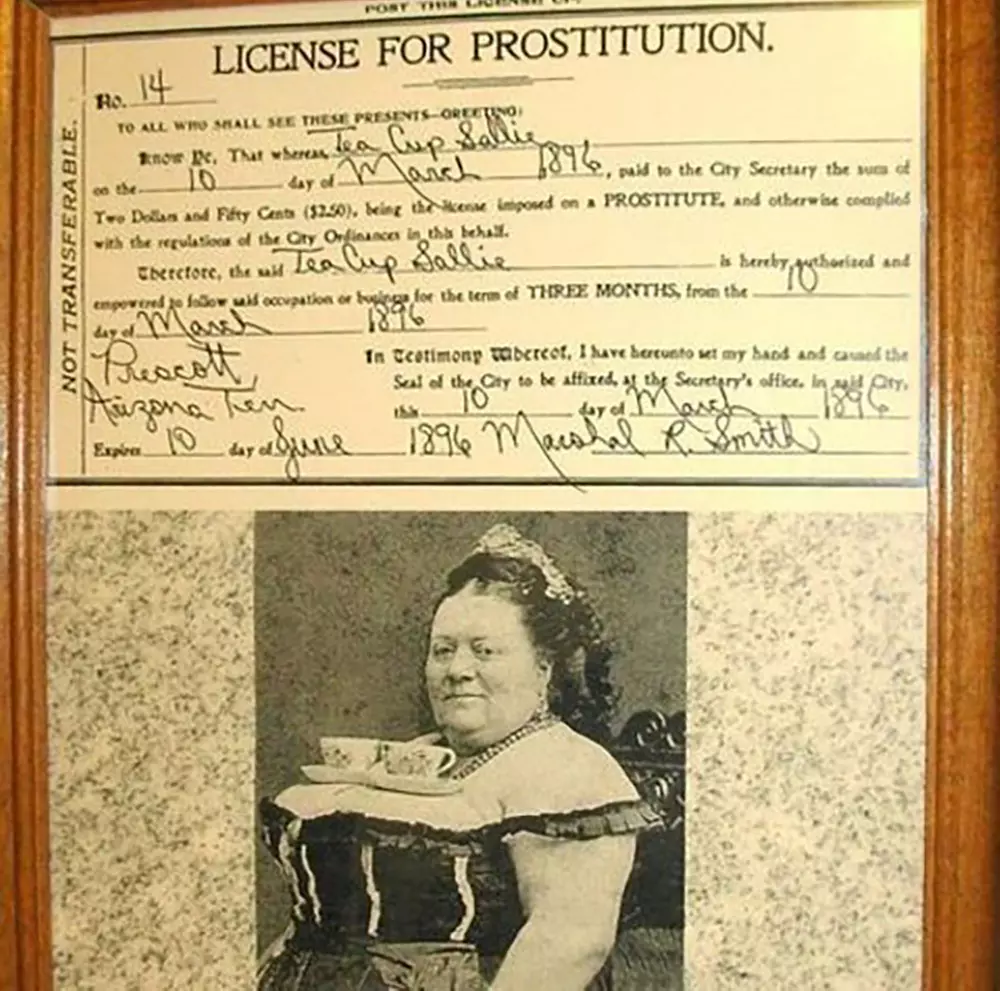 POST THIS LICENSE UP.
LICENSE FOR PROSTITUTION.
No. 14
TO ALL WHO SHALL SEE THESE PRESENTS—GREETING:
Know Ye, That whereas, Tea Cup Sallie
on the 10 day of March 1896, paid to the City Secretary the sum of
Two Dollars and Fifty Cents ($2.50), being the license imposed on a PROSTITUTE, and otherwise complied
with the regulations of the City Ordinances in this behalf.
Therefore, the said Tea Cup Sallie is hereby authorized and
empowered to follow said occupation or business for the term of THREE MONTHS, from the 10
day of March 1896
NOT TRANSFERABLE.
Prescott,
Arizona Terr.
In Testimony Whereof, I have hereunto set my hand and caused the
Seal of the City to be affixed, at the Secretary's office, in said City,
this 10 day of March 1896
Expires 10 day of June 1896 Marshal R. Smith